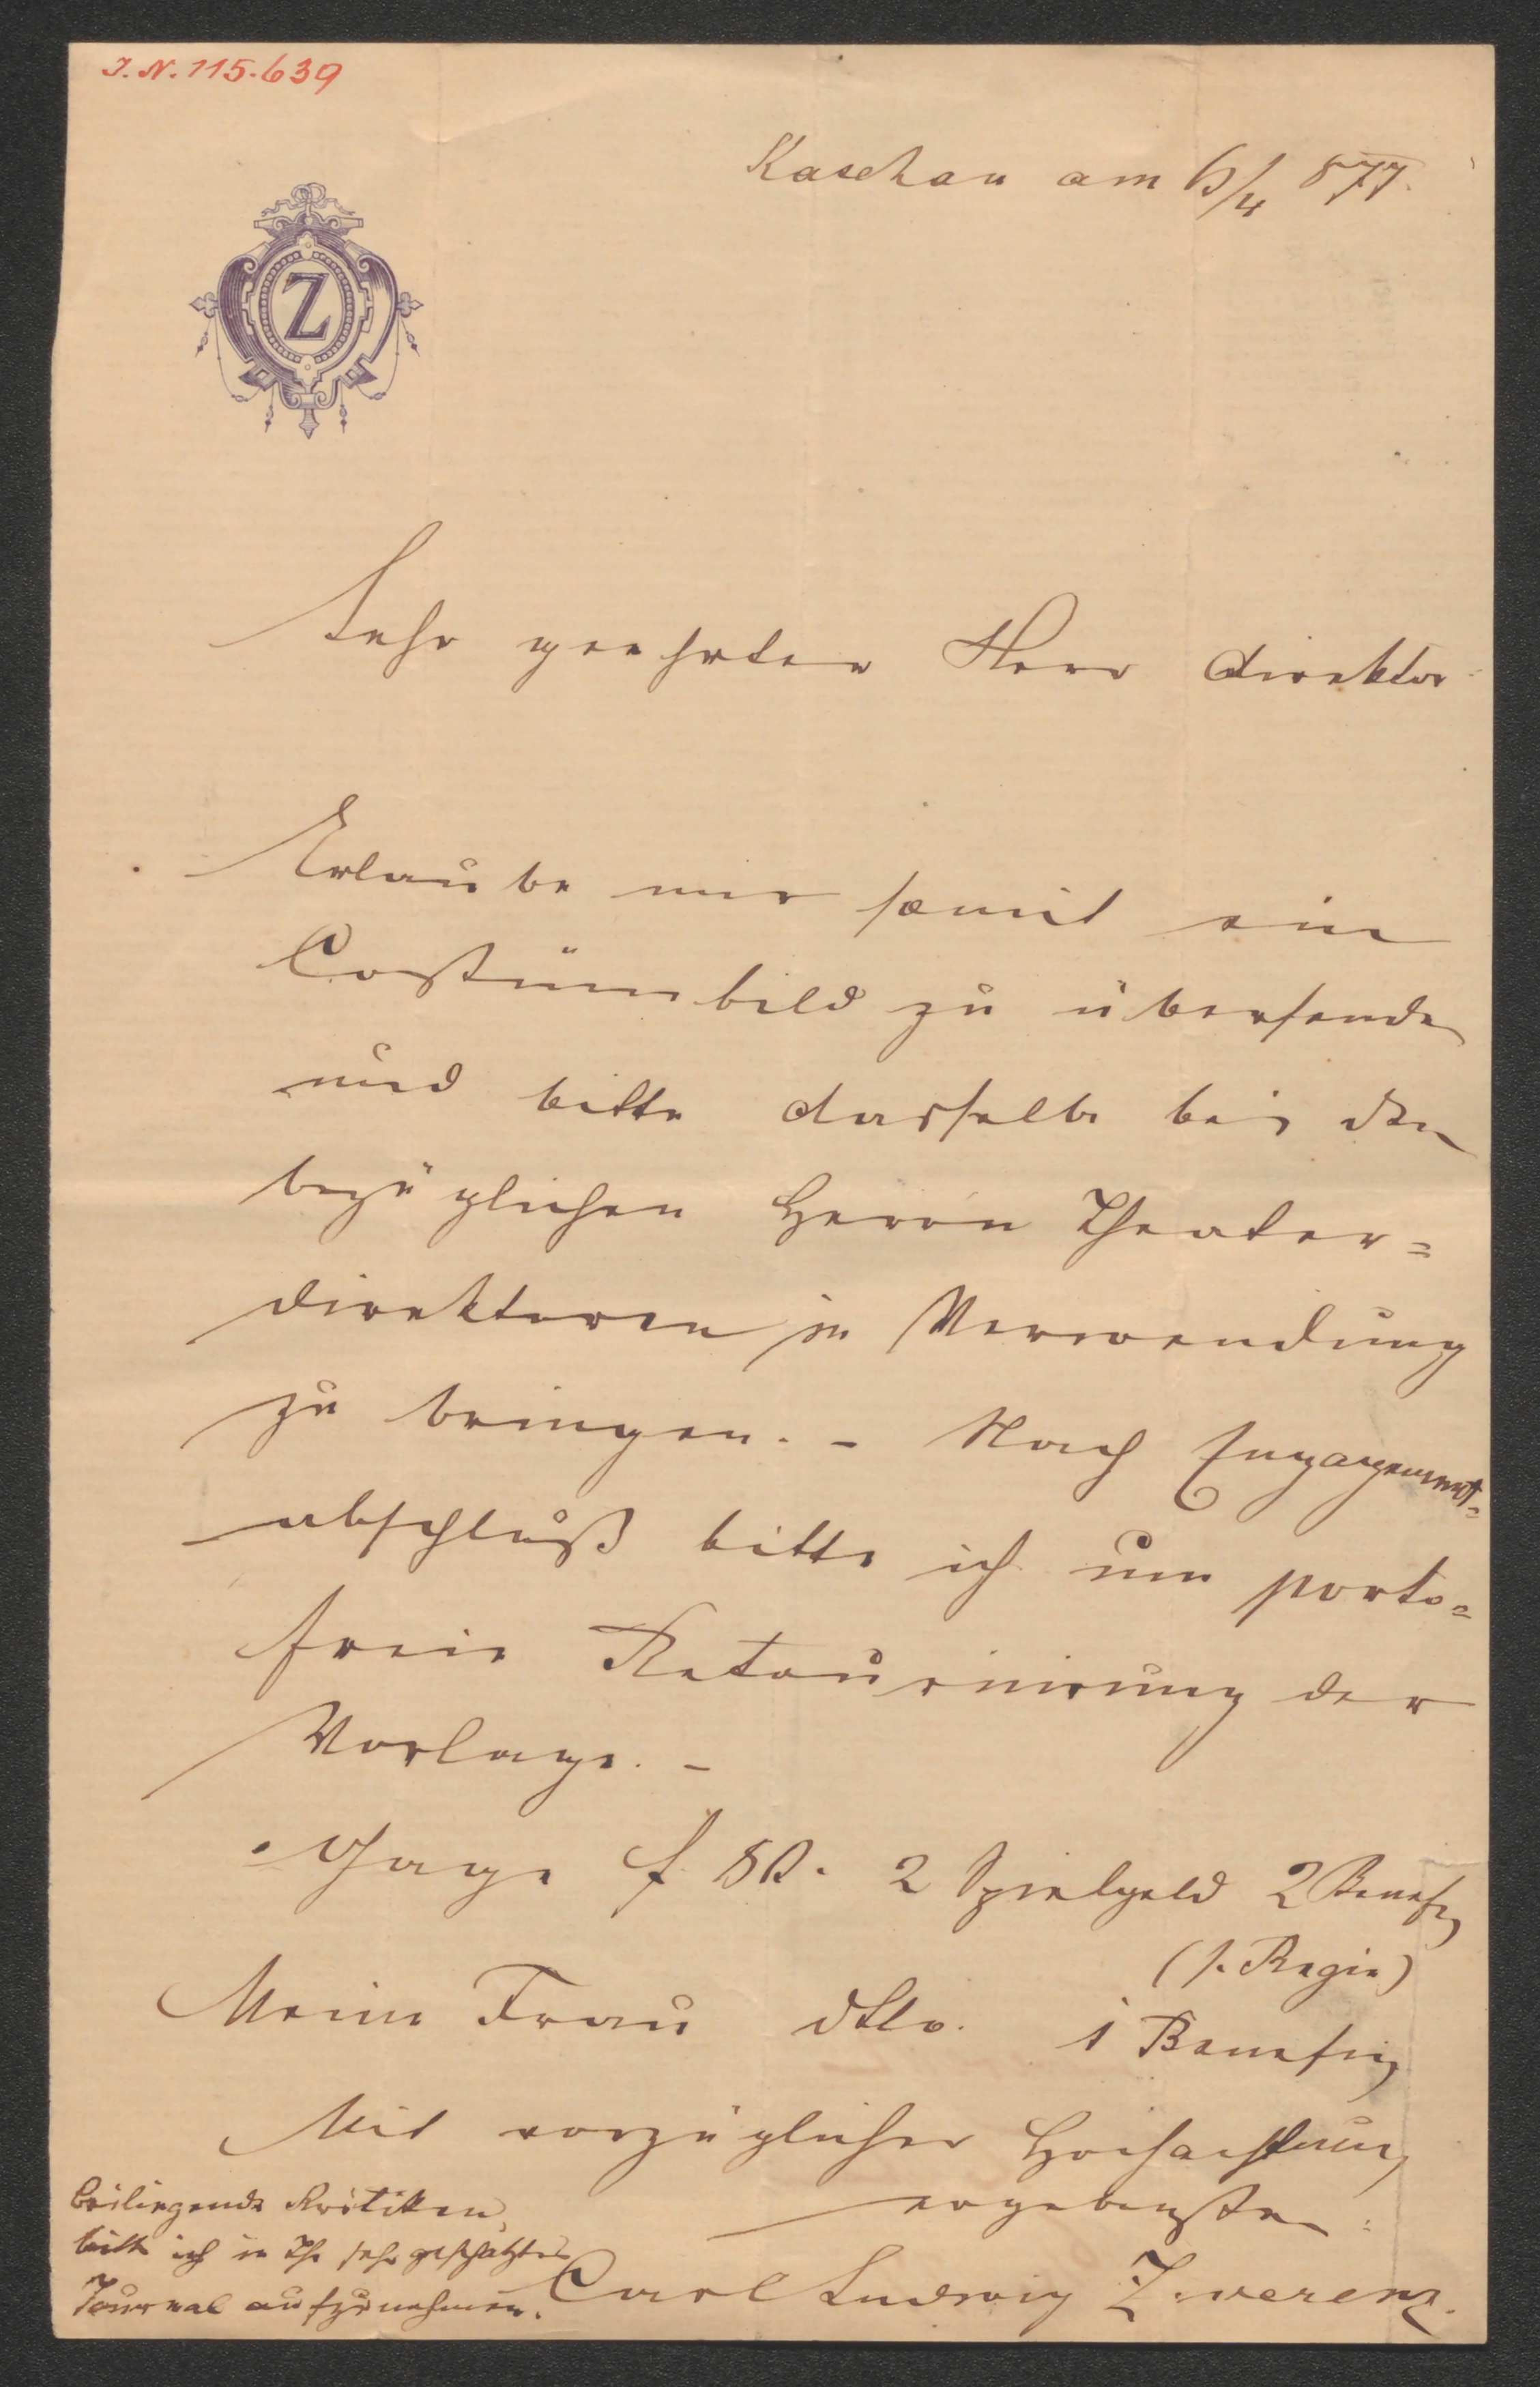 I. N. 115.639
Kaschau am 6/4 877.
Z
Sehr geehrter Herr Direktor
Erlaube mir somit ein
Costümbild zu übersenden
und bitte dasselbe bei den
bezüglichen Herrn Theater=
direktoren in Verwendung
zu bringen. - Nach Engagement=
abschluß bitte ich um porto=
freie Retournirung der
Vorlage. -
Gage f 80. 2 Spielgeld 2 Benefiz
(1. Regie)
Meine Frau dtto. 1 Benefiz
Mit vorzüglicher Hochachtung
ergebenster
Carl Ludwig Zwerenz.
beiliegende Kritiken,
bitte ich in Ihr sehr geschätztes
Journal aufzunehmen.